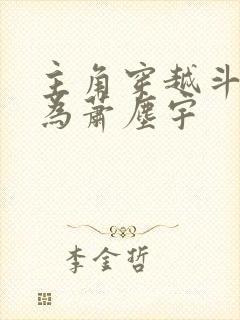 主角穿越斗
为萧尘宇
李金哲